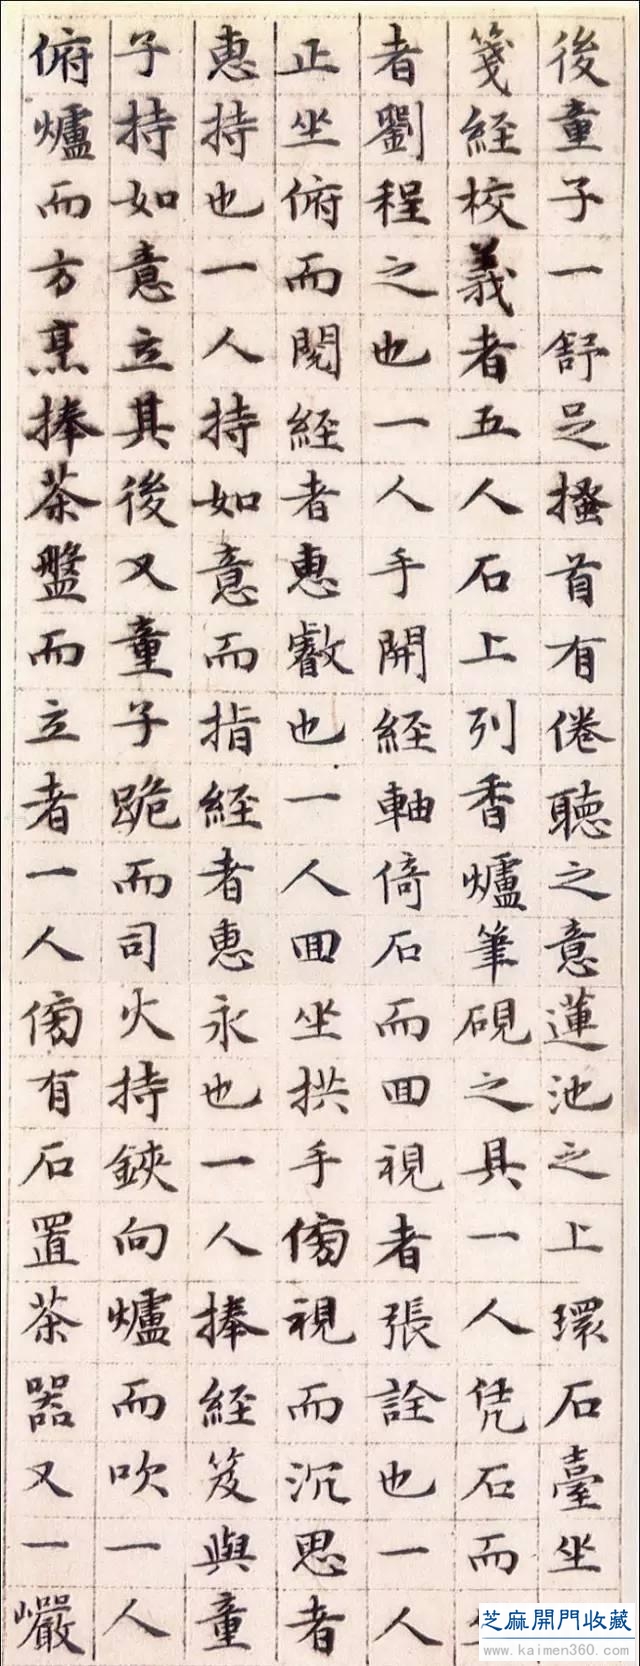 後童子一舒足搔首有倦聽之意蓮池之上環石臺坐
箋經校義者五人石上列香爐筆硯之具一人凭石而
者劉程之也一人手開經軸倚石而囬視者張詮也一人
正坐俯而閱經者惠叡也一人囬坐拱手傍視而沉思者
惠持也一人持如意而指經者惠永也一人捧經笈與童
子持如意立其後又童子跪而司火持鋏向爐而吹一人
俯爐而方烹捧茶盤而立者一人傍有石置茶器又一巖
芝麻開門收藏
www.kaimen360.com